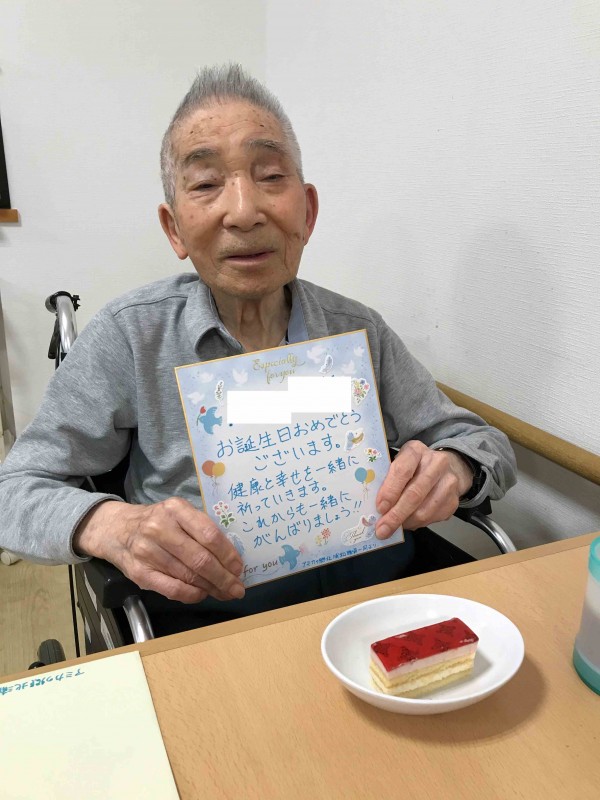 Especially
for you
お誕生日おめでとう
ございます。
健康と幸せを一緒に
祈っていきます。
これからも一緒に
がんばりましょう!!
for you